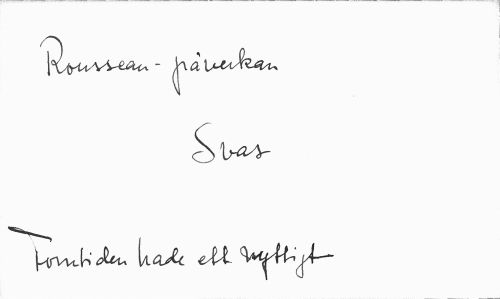 Rousseau-påverkan
Svas
Forntiden hade ett nyttigt